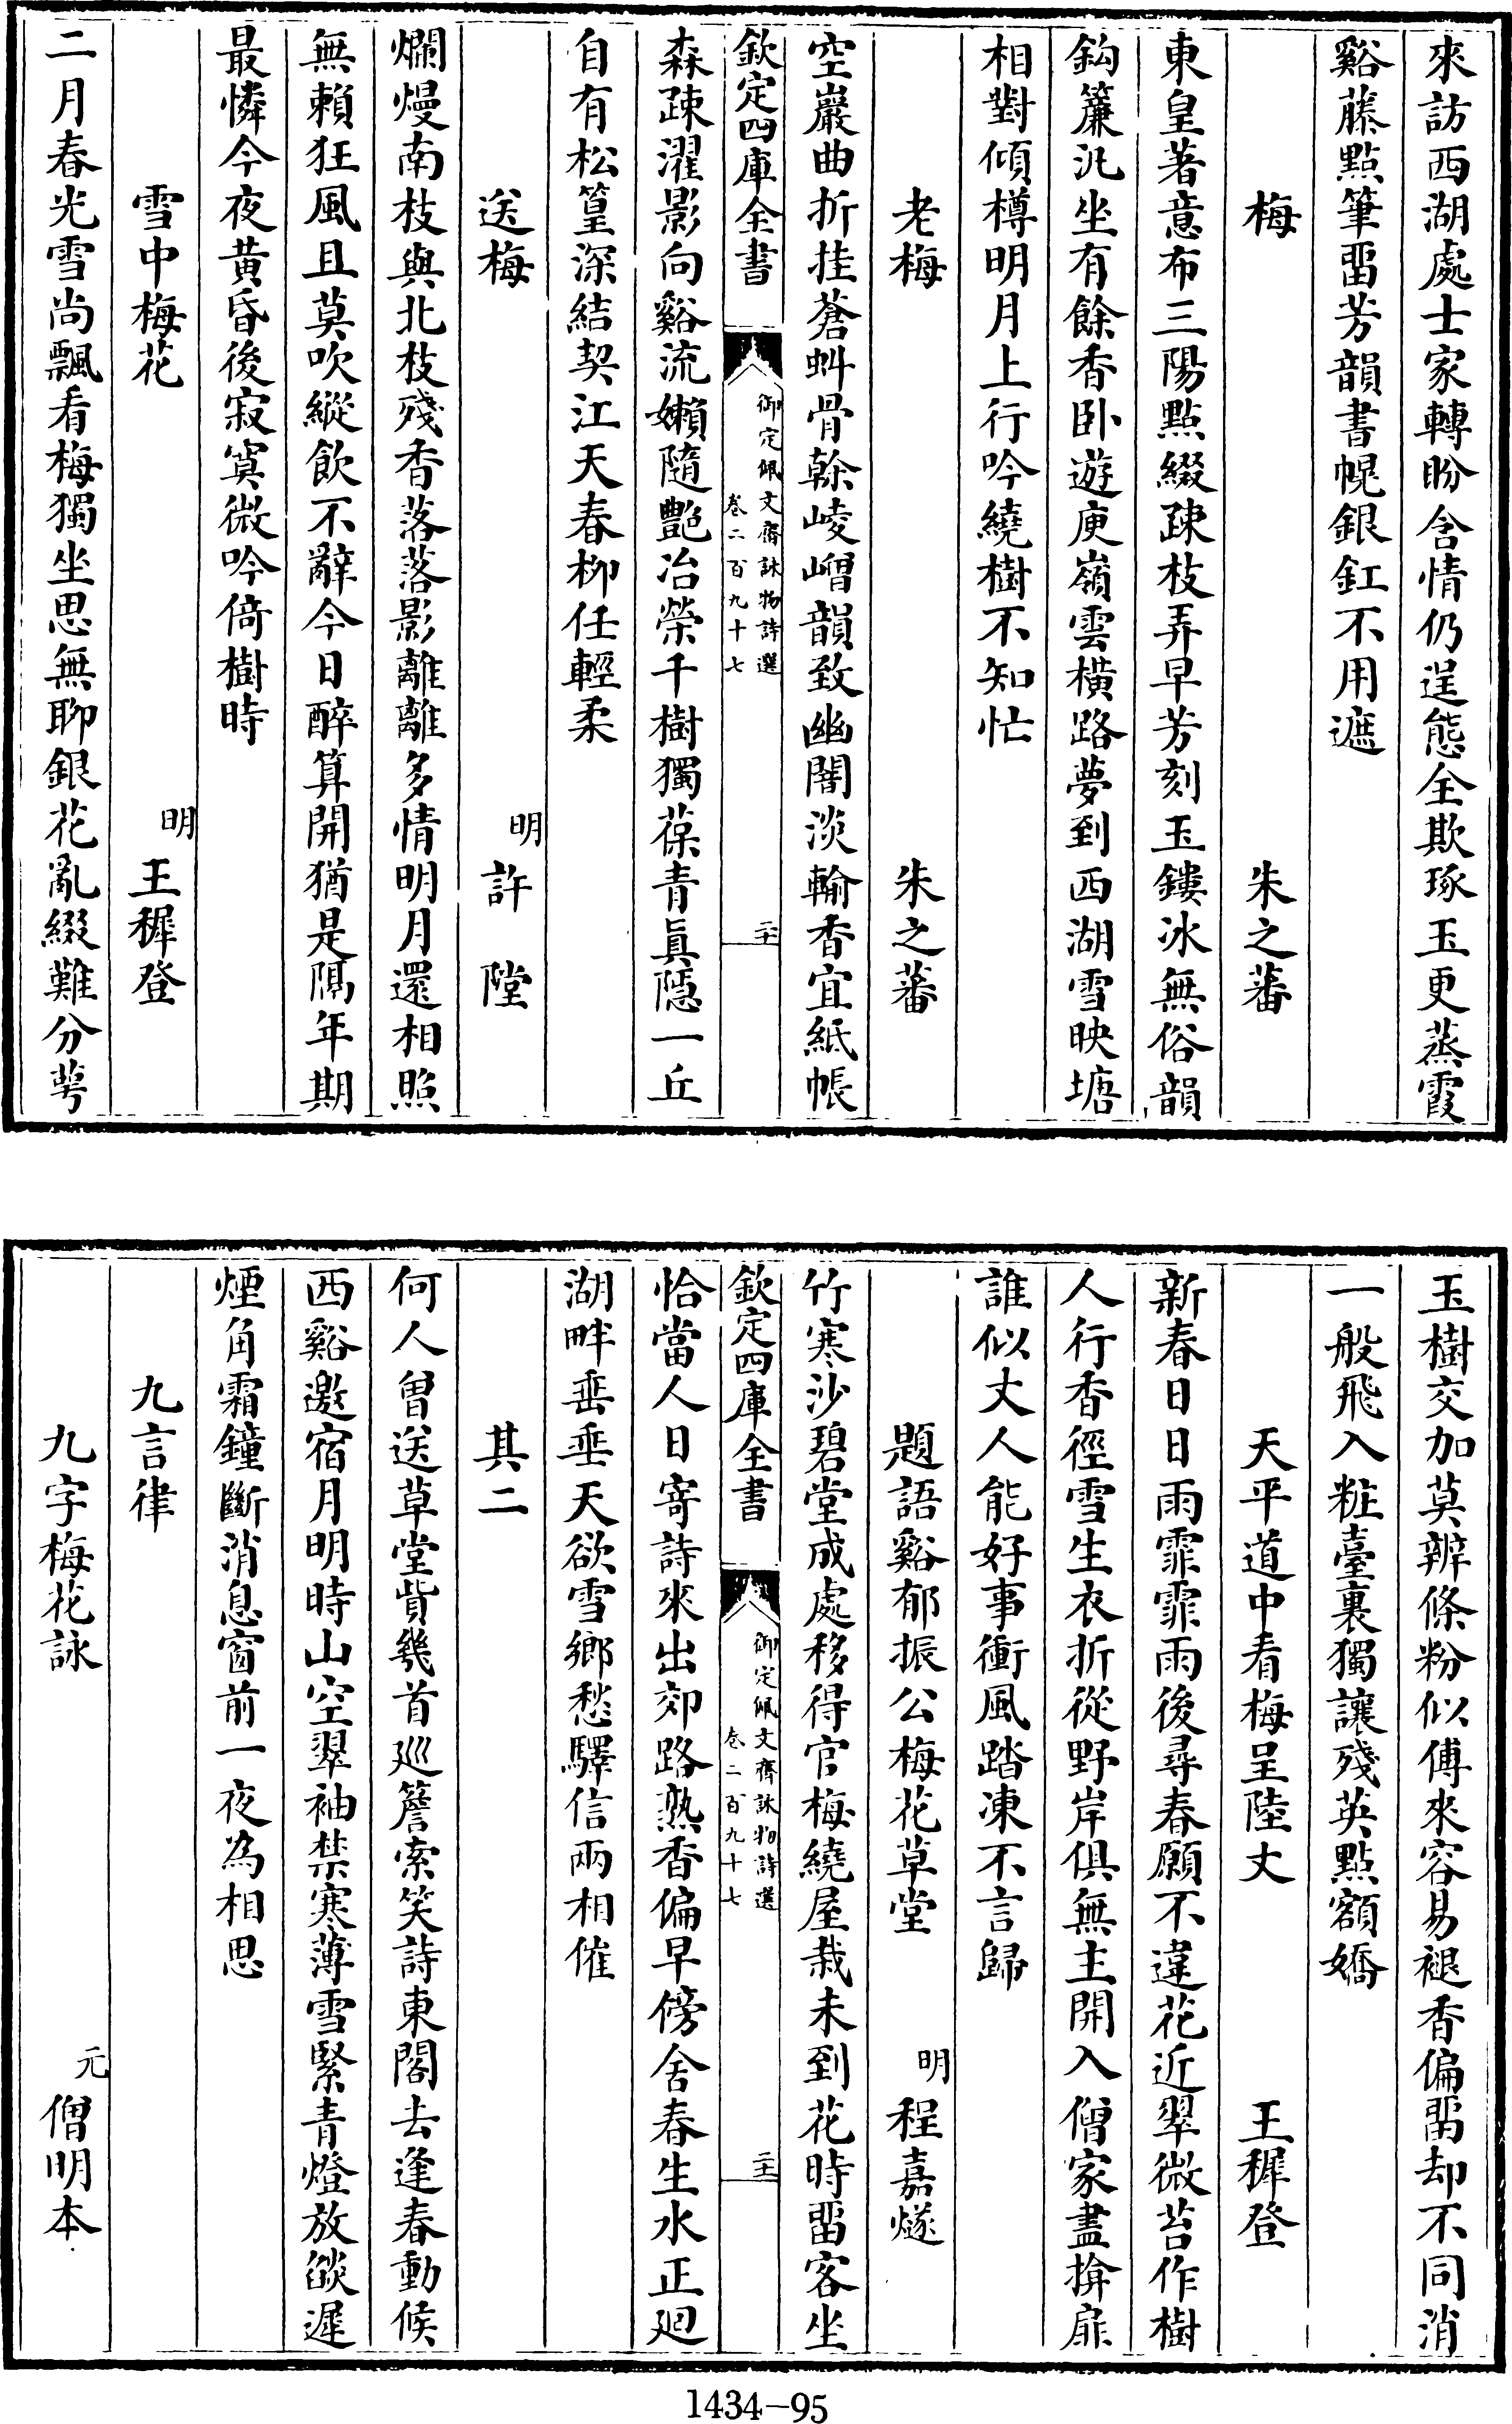 來訪西湖處士家轉盼含情仍逞態全欺琢玉更蒸霞
谿藤點筆畱芳韻書幌銀釭不用遮
梅　朱之蕃
東皇著意布三陽點綴疎枝弄早芳刻玉鏤冰無俗韻
鈎簾汎坐有餘香卧遊庾嶺雲橫路夢到西湖雪映塘
相對傾樽明月上行吟繞樹不知忙
老梅　朱之蕃
空巖曲折挂蒼虯骨榦崚嶒韻致幽闇淡輸香宜紙帳
欽定四庫全書　御定佩文齋詠物詩選　卷二百九十七　二十
森疎濯影向谿流嬾隨艷冶榮千樹獨葆青眞隱一丘
自有松篁深結契江天春柳任輕柔
送梅　明　許陞
爛熳南枝與北枝殘香落落影離離多情明月還相照
無賴狂風且莫吹縱飲不辭今日醉算開猶是隔年期
最憐今夜黄昏後寂寞微吟倚樹時
雪中梅花　明　王穉登
二月春光雪尚飄看梅獨坐思無聊銀花亂綴難分萼
玉樹交加莫辨條粉似傅來容易褪香偏畱却不同消
一般飛入粧臺裏獨讓殘英點額嬌
天平道中看梅呈陸丈　王穉登
新春日日雨霏霏雨後尋春願不違花近翠微苔作樹
人行香徑雪生衣折從野岸俱無主開入僧家盡揜扉
誰似丈人能好事衝風踏凍不言歸
題語谿郁振公梅花草堂　明　程嘉燧
竹寒沙碧堂成處移得官梅繞屋栽未到花時畱客坐
欽定四庫全書　御定佩文齋詠物詩選　卷二百九十七　二十一
恰當人日寄詩來出郊路熟香偏早傍舍春生水正廻
湖畔垂垂天欲雪鄉愁驛信兩相催
其二
何人曽送草堂貲幾首廵簷索笑詩東閣去逢春動候
西谿邀宿月明時山空翠袖禁寒薄雪緊青燈放燄遲
煙角霜鐘斷消息窗前一夜為相思
九言律
九字梅花詠　元　僧明本
1434-95